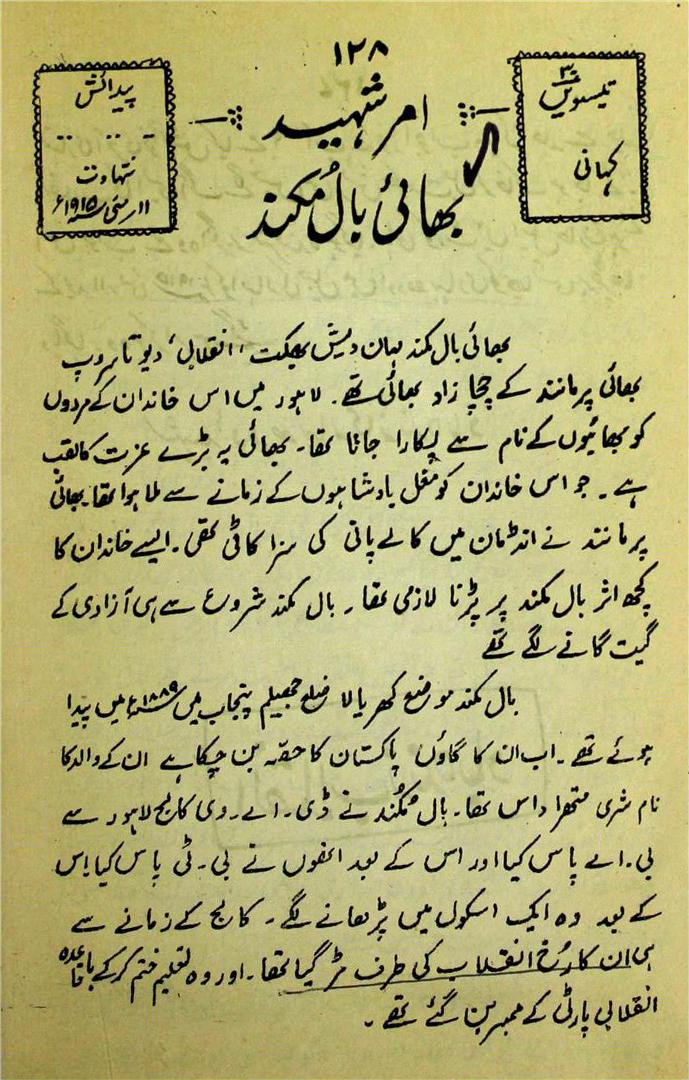 ۱۲۸
تیسویں ۳۰
کہانی
امر شہید
بھائی بال مُکند
پیدائش
-- -- --
شہادت
۱۱ مئی ۱۹۱۵ء
بھائی بال مکند مہان دیش بھگت، انقلابی، دیوتا سروپ
بھائی پرمانند کے چچا زاد بھائی تھے۔ لاہور میں اس خاندان کے مردوں
کو بھائیوں کے نام سے پکارا جاتا تھا۔ بھائی یہ بڑے عزت کا لقب
ہے۔ جو اس خاندان کو مغل بادشاہوں کے زمانے سے ملا ہوا تھا بھائی
پرمانند نے انڈمان میں کالے پانی کی سزا کاٹی تھی۔ ایسے خاندان کا
کچھ اثر بال مکند پر پڑنا لازمی تھا۔ بال مکند شروع سے ہی آزادی کے
گیت گانے لگے تھے
بال مکند موضع کھریالا ضلع جھیلم پنجاب میں ۱۸۸۹ء میں پیدا
ہوئے تھے۔ اب ان کا گاؤں پاکستان کا حصّہ بن چکا ہے ان کے والد کا
نام شری متھرا داس تھا۔ بال مُکُند نے ڈی۔ اے۔ وی کالج لاہور سے
بی۔ اے پاس کیا اور اس کے بعد انھوں نے بی۔ ٹی پاس کیا اس
کے بعد وہ ایک اسکول میں پڑھانے لگے۔ کالج کے زمانے سے
ہی ان کا رُخ انقلاب کی طرف مڑ گیا تھا۔ اور وہ تعلیم ختم کر کے باقاعدہ
انقلابی پارٹی کے ممبر بن گئے تھے۔